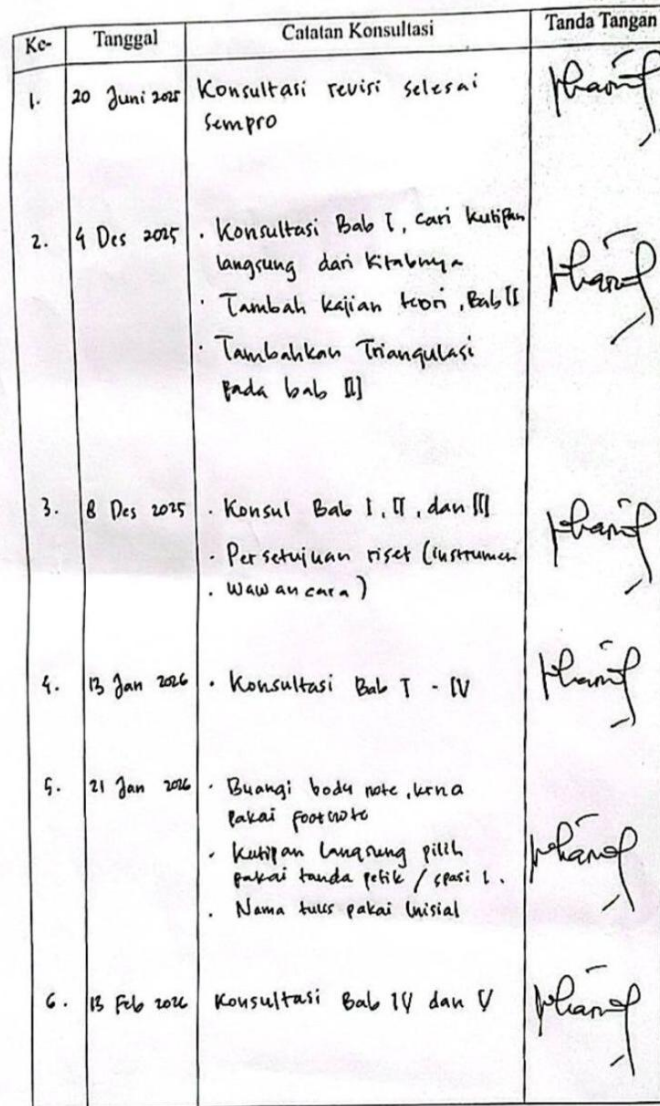 Ke- Tanggal Catatan Konsultasi Tanda Tangan
1. 20 Juni 2025 Konsultasi revisi selesai
sempro
2. 4 Des 2025 · Konsultasi Bab I, cari kutipan
langsung dari kitabnya
· Tambah kajian teori, Bab II
· Tambahkan Triangulasi
pada bab III
3. 8 Des 2025 · Konsul Bab I, II, dan III
· Persetujuan riset (instrumen
· wawancara)
4. 13 Jan 2026 · Konsultasi Bab I - IV
5. 21 Jan 2026 · Buangi body note, krna
pakai footnote
· Kutipan langsung pilih
pakai tanda petik / spasi 1.
· Nama pakai inisial
6. 13 Feb 2026 Konsultasi Bab IV dan V